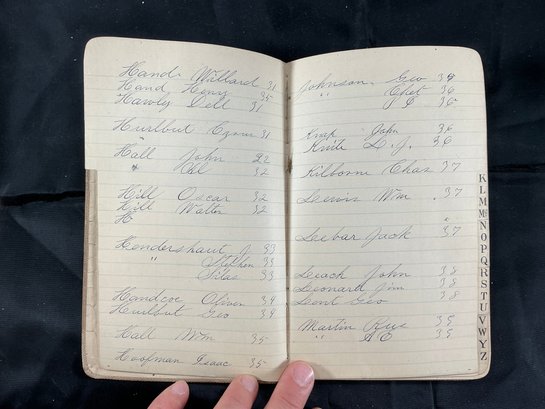 Hand Willard 31
Hand Henry 35
Hawly Dell 31
Hurlbut Ezra 31
Hall John 22
" Al 32
Hill Oscar 32
Hill Walter 32
H
Hendershaut J. 33
" Stephen 33
Silas 33
Handcoe Oliver 34
Hurlbut Geo 34
Hall Wm 35
Hoofman Isaac 35
Johnson Geo 34
" Chet 36
36
Knap John 36
D. J. 36
Kilborne Chas 37
Lewis Wm 37
"
Leebar Jack 37
Leach John 38
Leonard Jim 38
Lent Geo 38
Martin Rue 35
" A O 35
K
L
M
Mc
N
O
P
Q
R
S
T
U
V
W
Y
Z